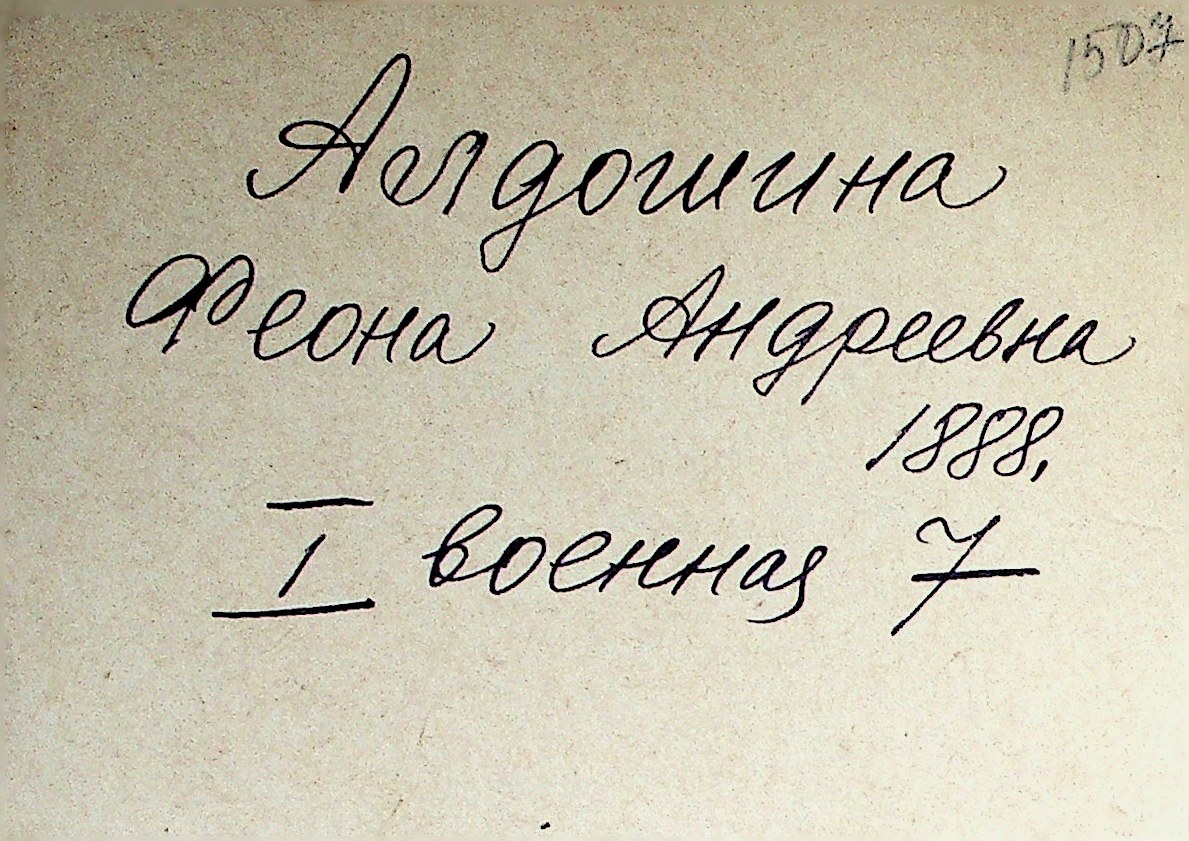 1507
Алдошина
Феона Андреевна
1888,
I военная 7